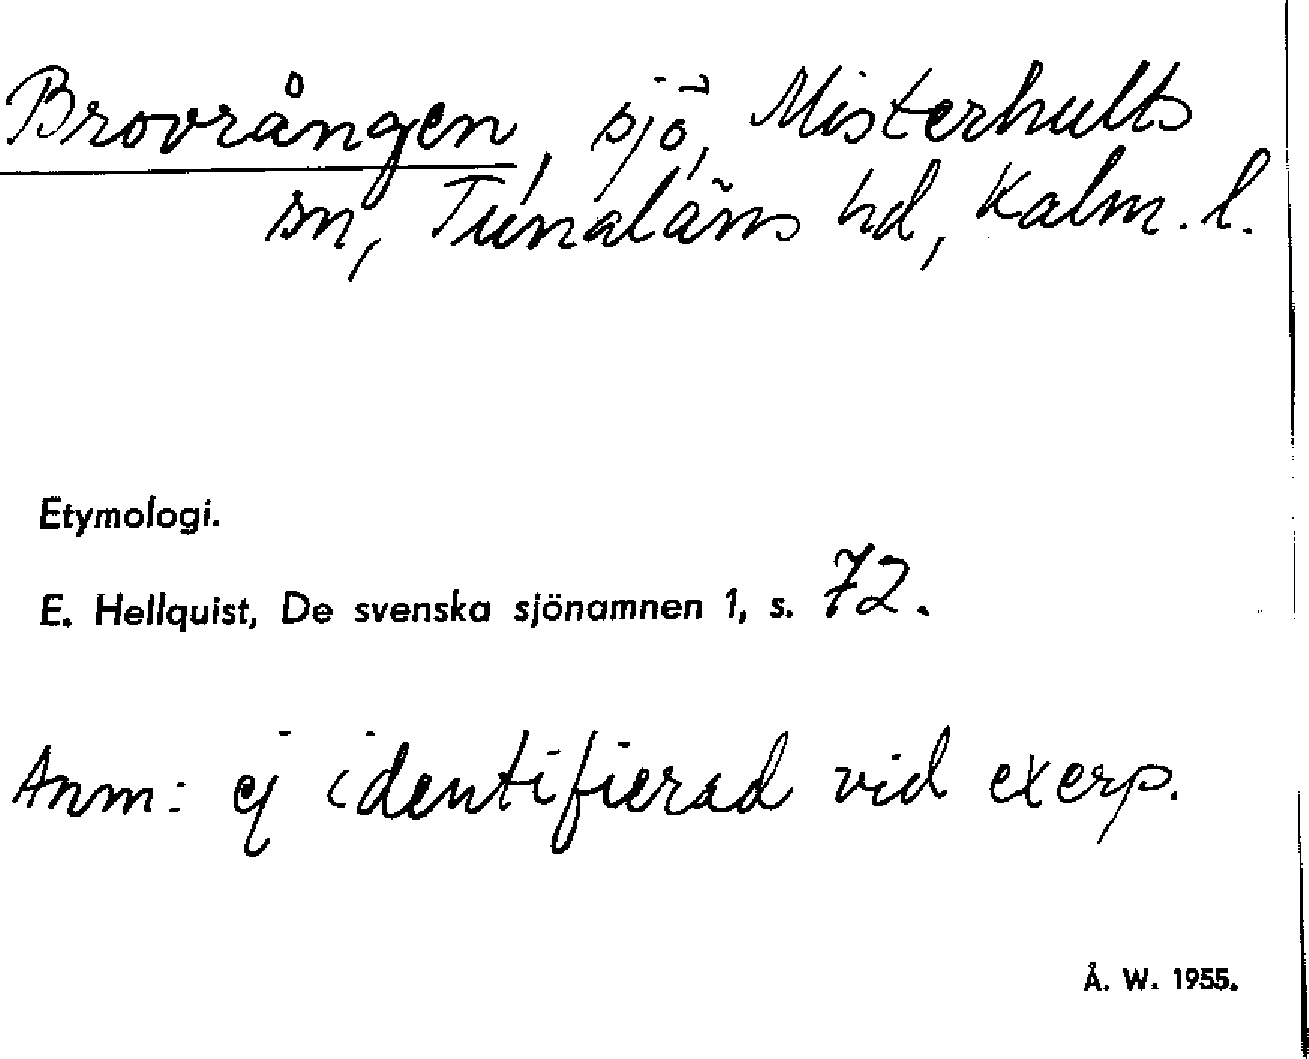 Brovrången, sjö, Misterhults
sn, Tunaläns hd, Kalm. l.
Etymologi.
E. Hellquist, De svenska sjönamnen 1, s. 72.
Anm: ej identifierad vid exerp.
Å. W. 1955.